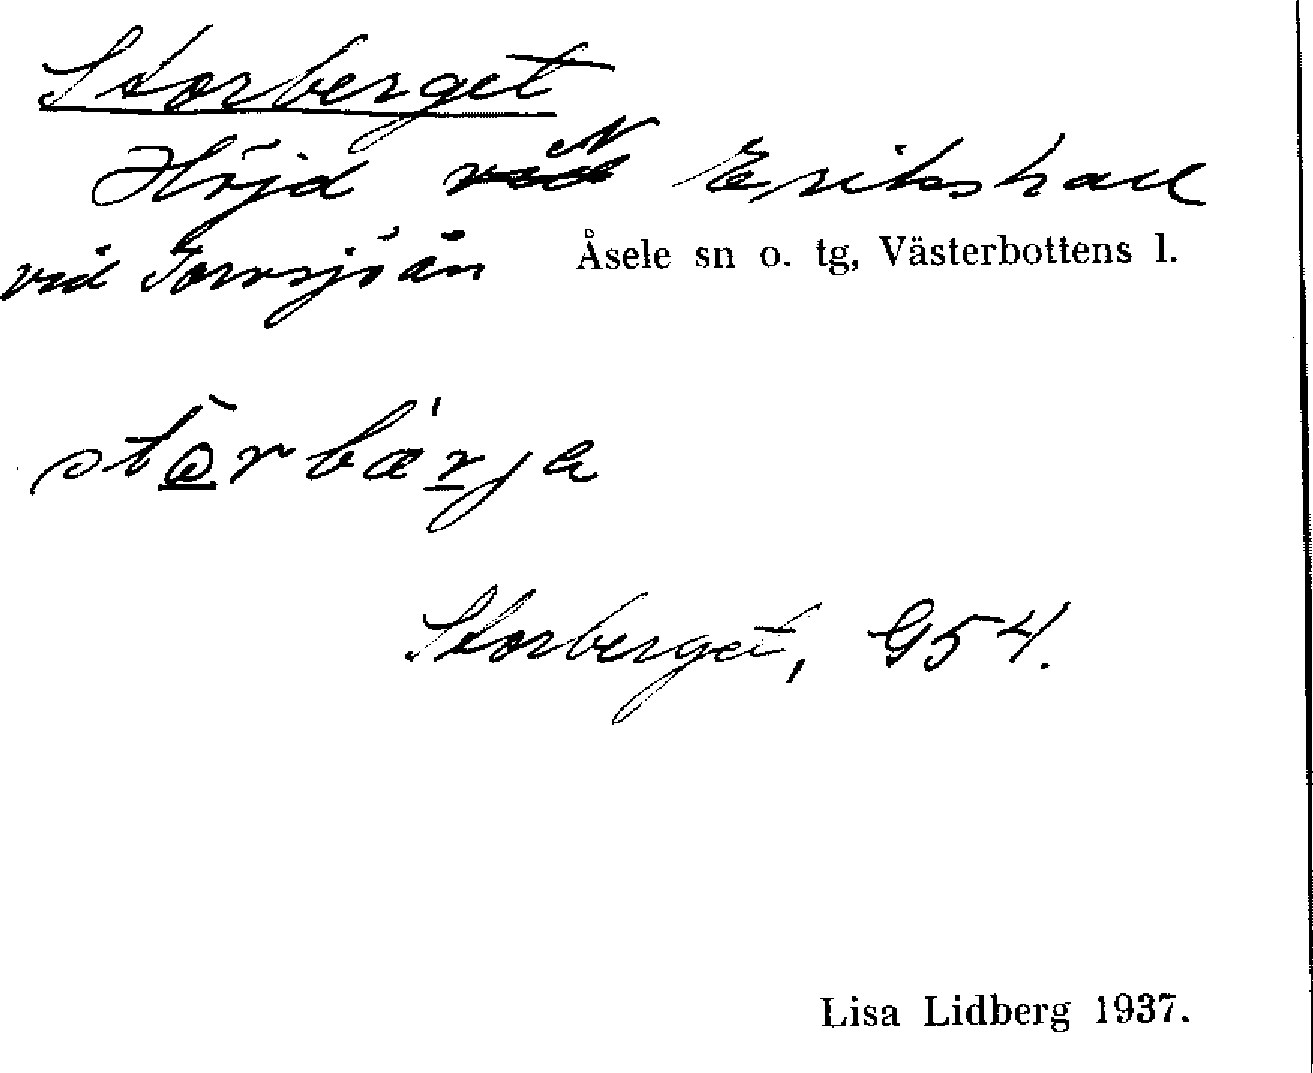 Storberget
Höjd N Erikshall
vid Torvsjöån Åsele sn o. tg, Västerbottens l.
stòrbæ'rja
Storberget, G54.
Lisa Lidberg 1937.